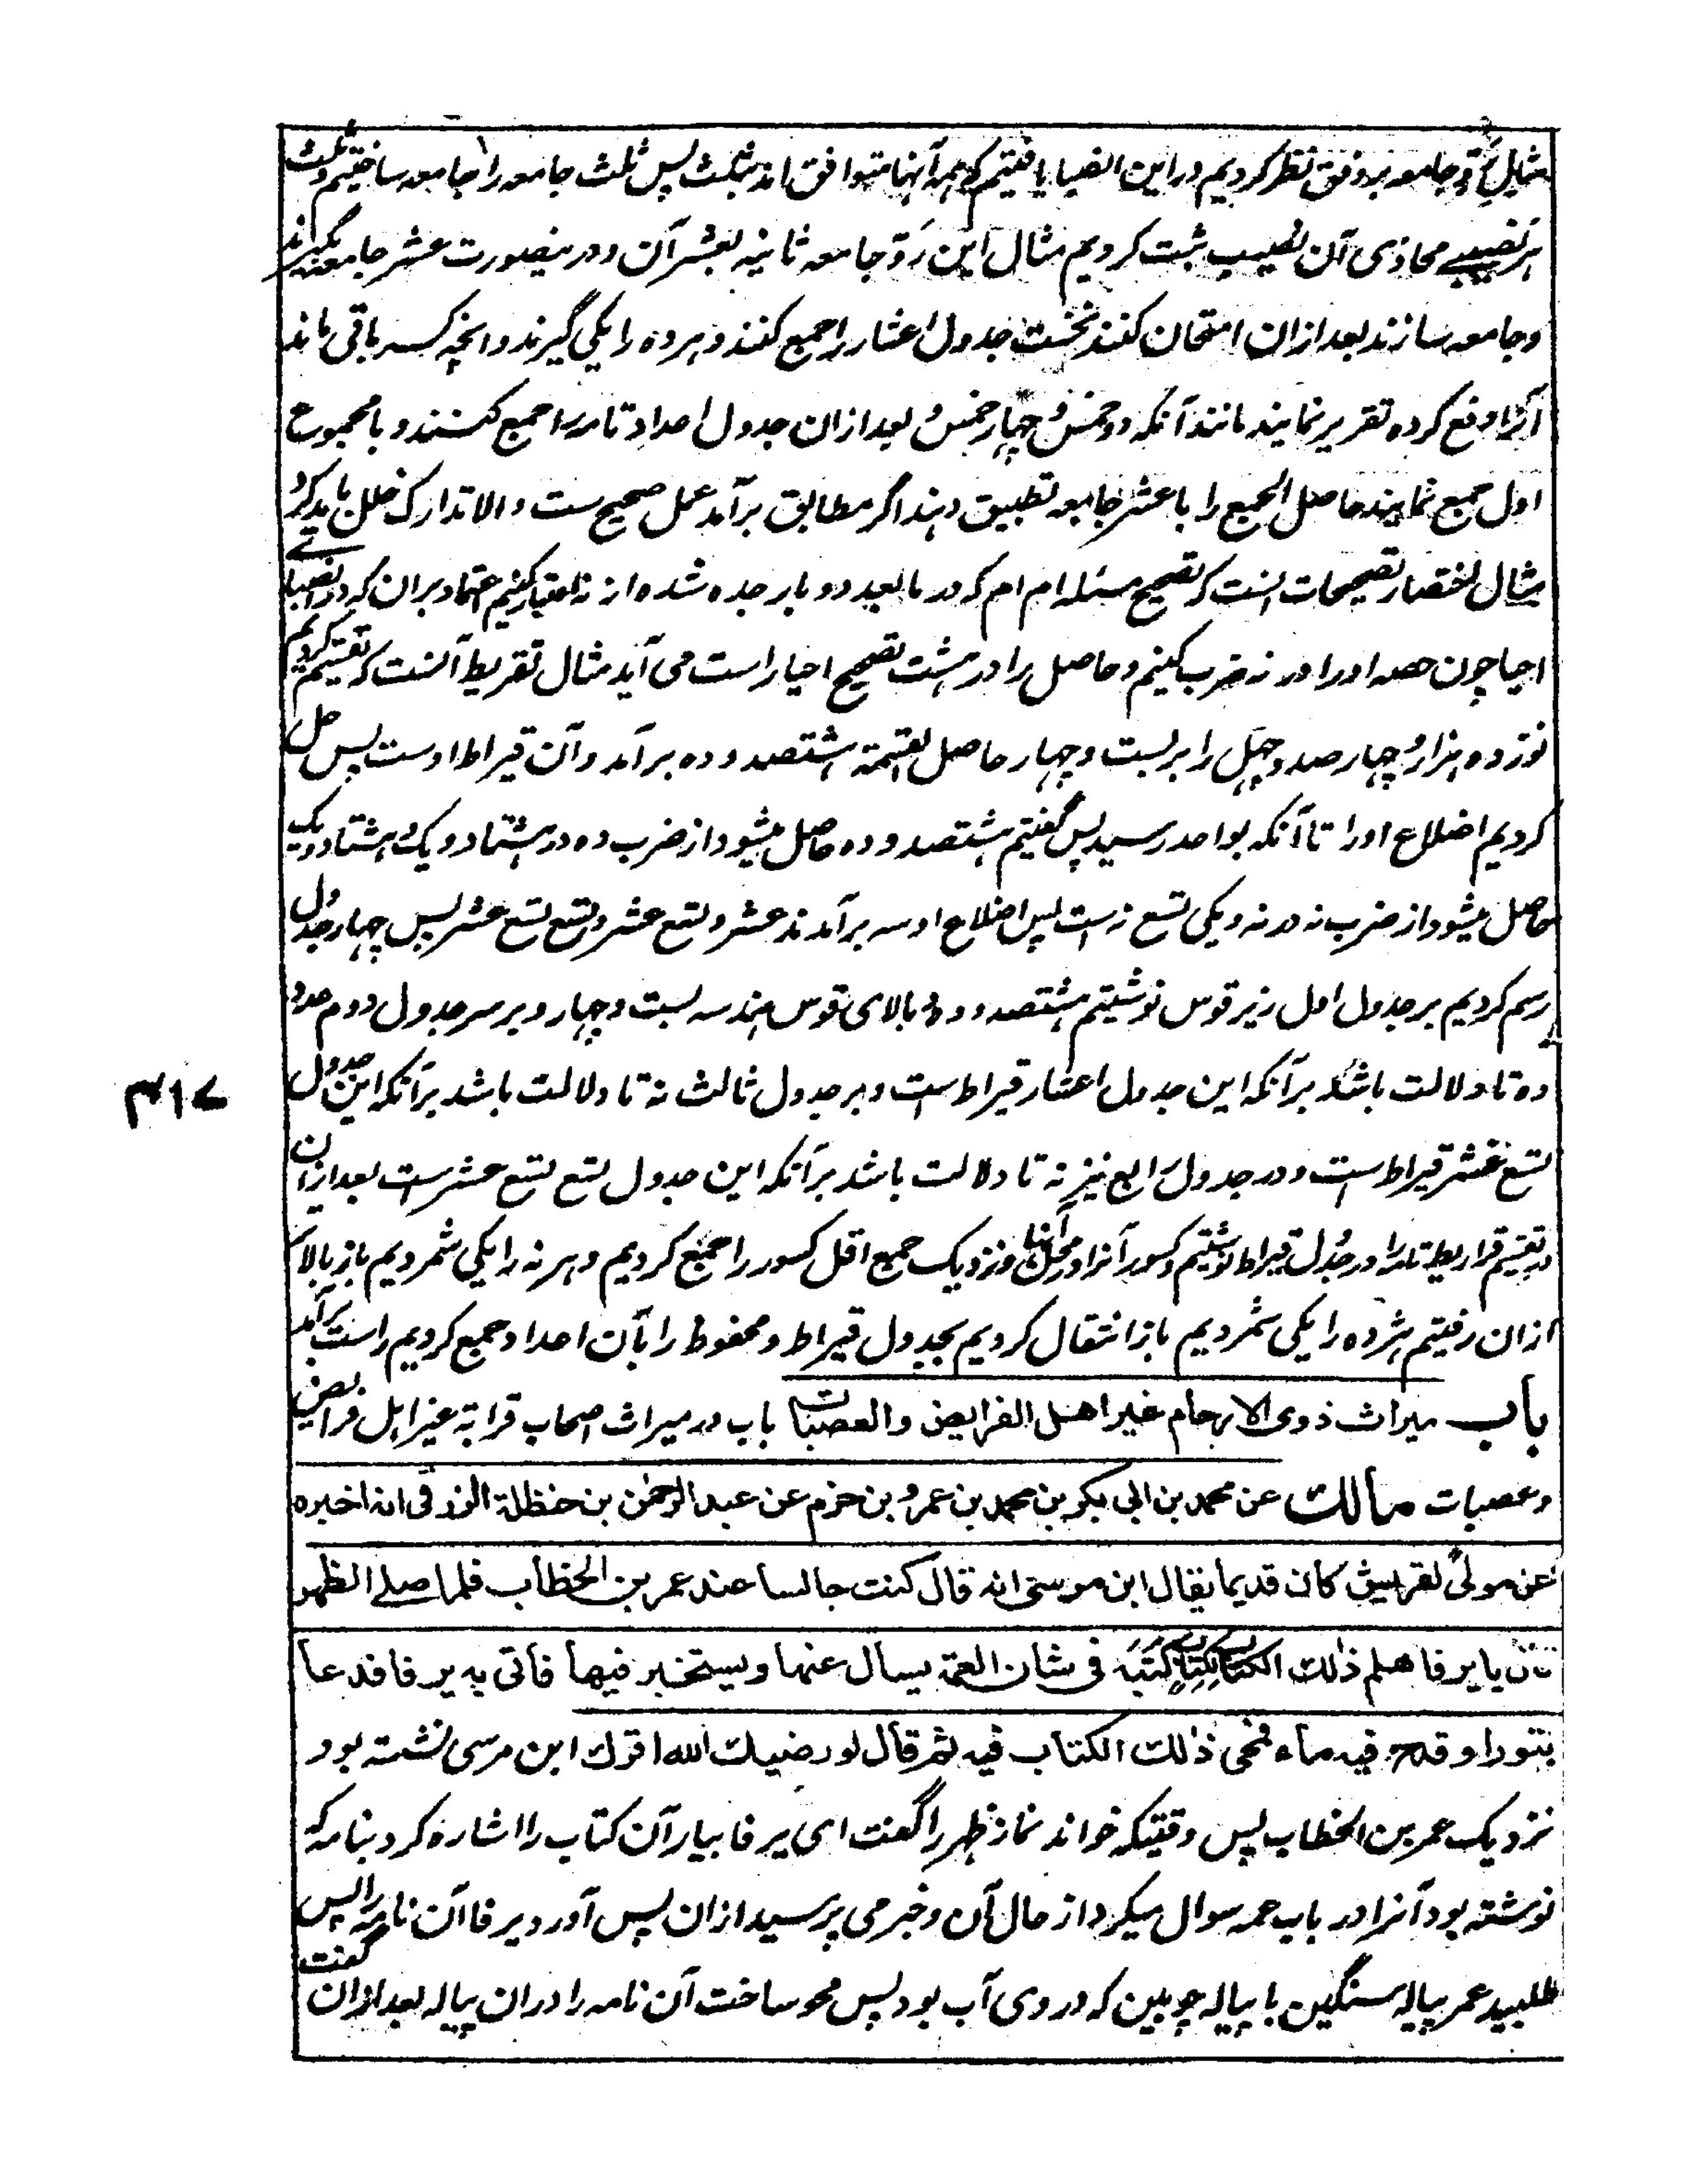 مثال رد جامعه بر وفق نظر کردیم در این انصبا یافتیم که همه آنها متوافق اند بثلث پس ثلث جامعه را جامعه ساختیم و ثلث
هر نصیبے محاذی آن نصیب ثبت کردیم مثال این رد جامعه ثانیه بعشر آن و درینصورت عشر جامعه بگیرند
و جامعه سازند بعد ازان امتحان کنند نخست جدول اعشار را جمع کنند و هر ده را یکی گیرند و انچه کسر باقی ماند
آنرا رفع کرده تقریر نمایند مانند آنکه دو خمس و چهار خمس و بعد ازان جدول اعداد تامه را جمع کنند و با مجموع
اول جمع نمایند حاصل الجمع را با عشر جامعه تطبیق دهند اگر مطابق برآمد عمل صحیح ست و الا تدارک خلل باید کرد
مثال اختصار تصحیحات آنست که تصحیح مسئله ام ام که در مابعد دو بار جده شده از نه اعتبار کنیم اعتماد بران که در انصباے
احیا چون حصه او را در نه ضرب کنیم و حاصل را در هشت تصحیح احیا راست می آید مثال تقریط آنست که تقسیم کردیم
نوزده هزار و چهار صد و چهل را بر بست و چهار حاصل القسمة هشتصد و ده برآمد و آن قیراط اوست پس حل
کردیم اضلاع او را تا آنکه بواحد رسید پس گفتیم هشتصد و ده حاصل میشود از ضرب ده در هشتاد و یک و هشتاد و یک
حاصل میشود از ضرب نه در نه و یکی تسع نه است پس اضلاع او سه برآمدند عشر و تسع عشر و تسع تسع عشر پس چهار جدول
رسم کردیم بر جدول اول زیر قوس نوشتیم هشتصد و ده و بالای قوس هندسه بست و چهار و بر سر جدول دوم عدد
ده تا دلالت باشد برآنکه این جدول اعشار قیراط است و بر جدول ثالث نه تا دلالت باشد برآنکه این جدول
تسع عشر قیراط است و در جدول رابع نیز نه تا دلالت باشد برآنکه این جدول تسع تسع عشر ست بعد ازان
در تقسیم قراریط تامه را در جدول قیراط نوشتیم و کسور آنرا در محل آنها و نزدیک جمع اقل کسور را جمع کردیم و هر نه را یکی شمردیم باز بالاتر
ازان رفتیم هر ده را یکی شمردیم باز انتقال کردیم بجدول قیراط و محفوظ را بآن اعداد جمع کردیم راست برآمد
باب میراث ذوی الارحام غیر اهل الفرایض والعصبات باب در میراث اصحاب قرابة غیر اهل فرایض
و عصبات مالك عن محمد بن ابی بکر بن محمد بن عمرو بن حزم عن عبد الرحمن بن حنظلة الزرقی انه اخبره
عن مولی لقریش کان قدیما یقال ابن موسی انه قال کنت جالسا عند عمر بن الخطاب فلما صلے الظهر
قال یا یرفا هلم ذلك الکتاب لکتاب کتبه فی شان العمة یسال عنها ویستخبر فیها فاتی به یرفا فدعا
بتور او قدح فیه ماء فمحی ذلك الکتاب فیه ثم قال لو رضیك الله اقرك ابن مرسی نشسته بود
نزدیک عمر بن الخطاب پس وقتیکه خواند نماز ظهر را گفت ای یرفا بیار آن کتاب را اشاره کرد بنامه که
نوشته بود آنرا در باب عمه سوال میکرد از حال آن و خبر می پرسید ازان پس آورد یرفا آن نامه را پس
طلبید عمر پیاله سنگین یا پیاله چوبین که در وی آب بود پس محو ساخت آن نامه را دران پیاله بعد ازان گفت
۳۱۷